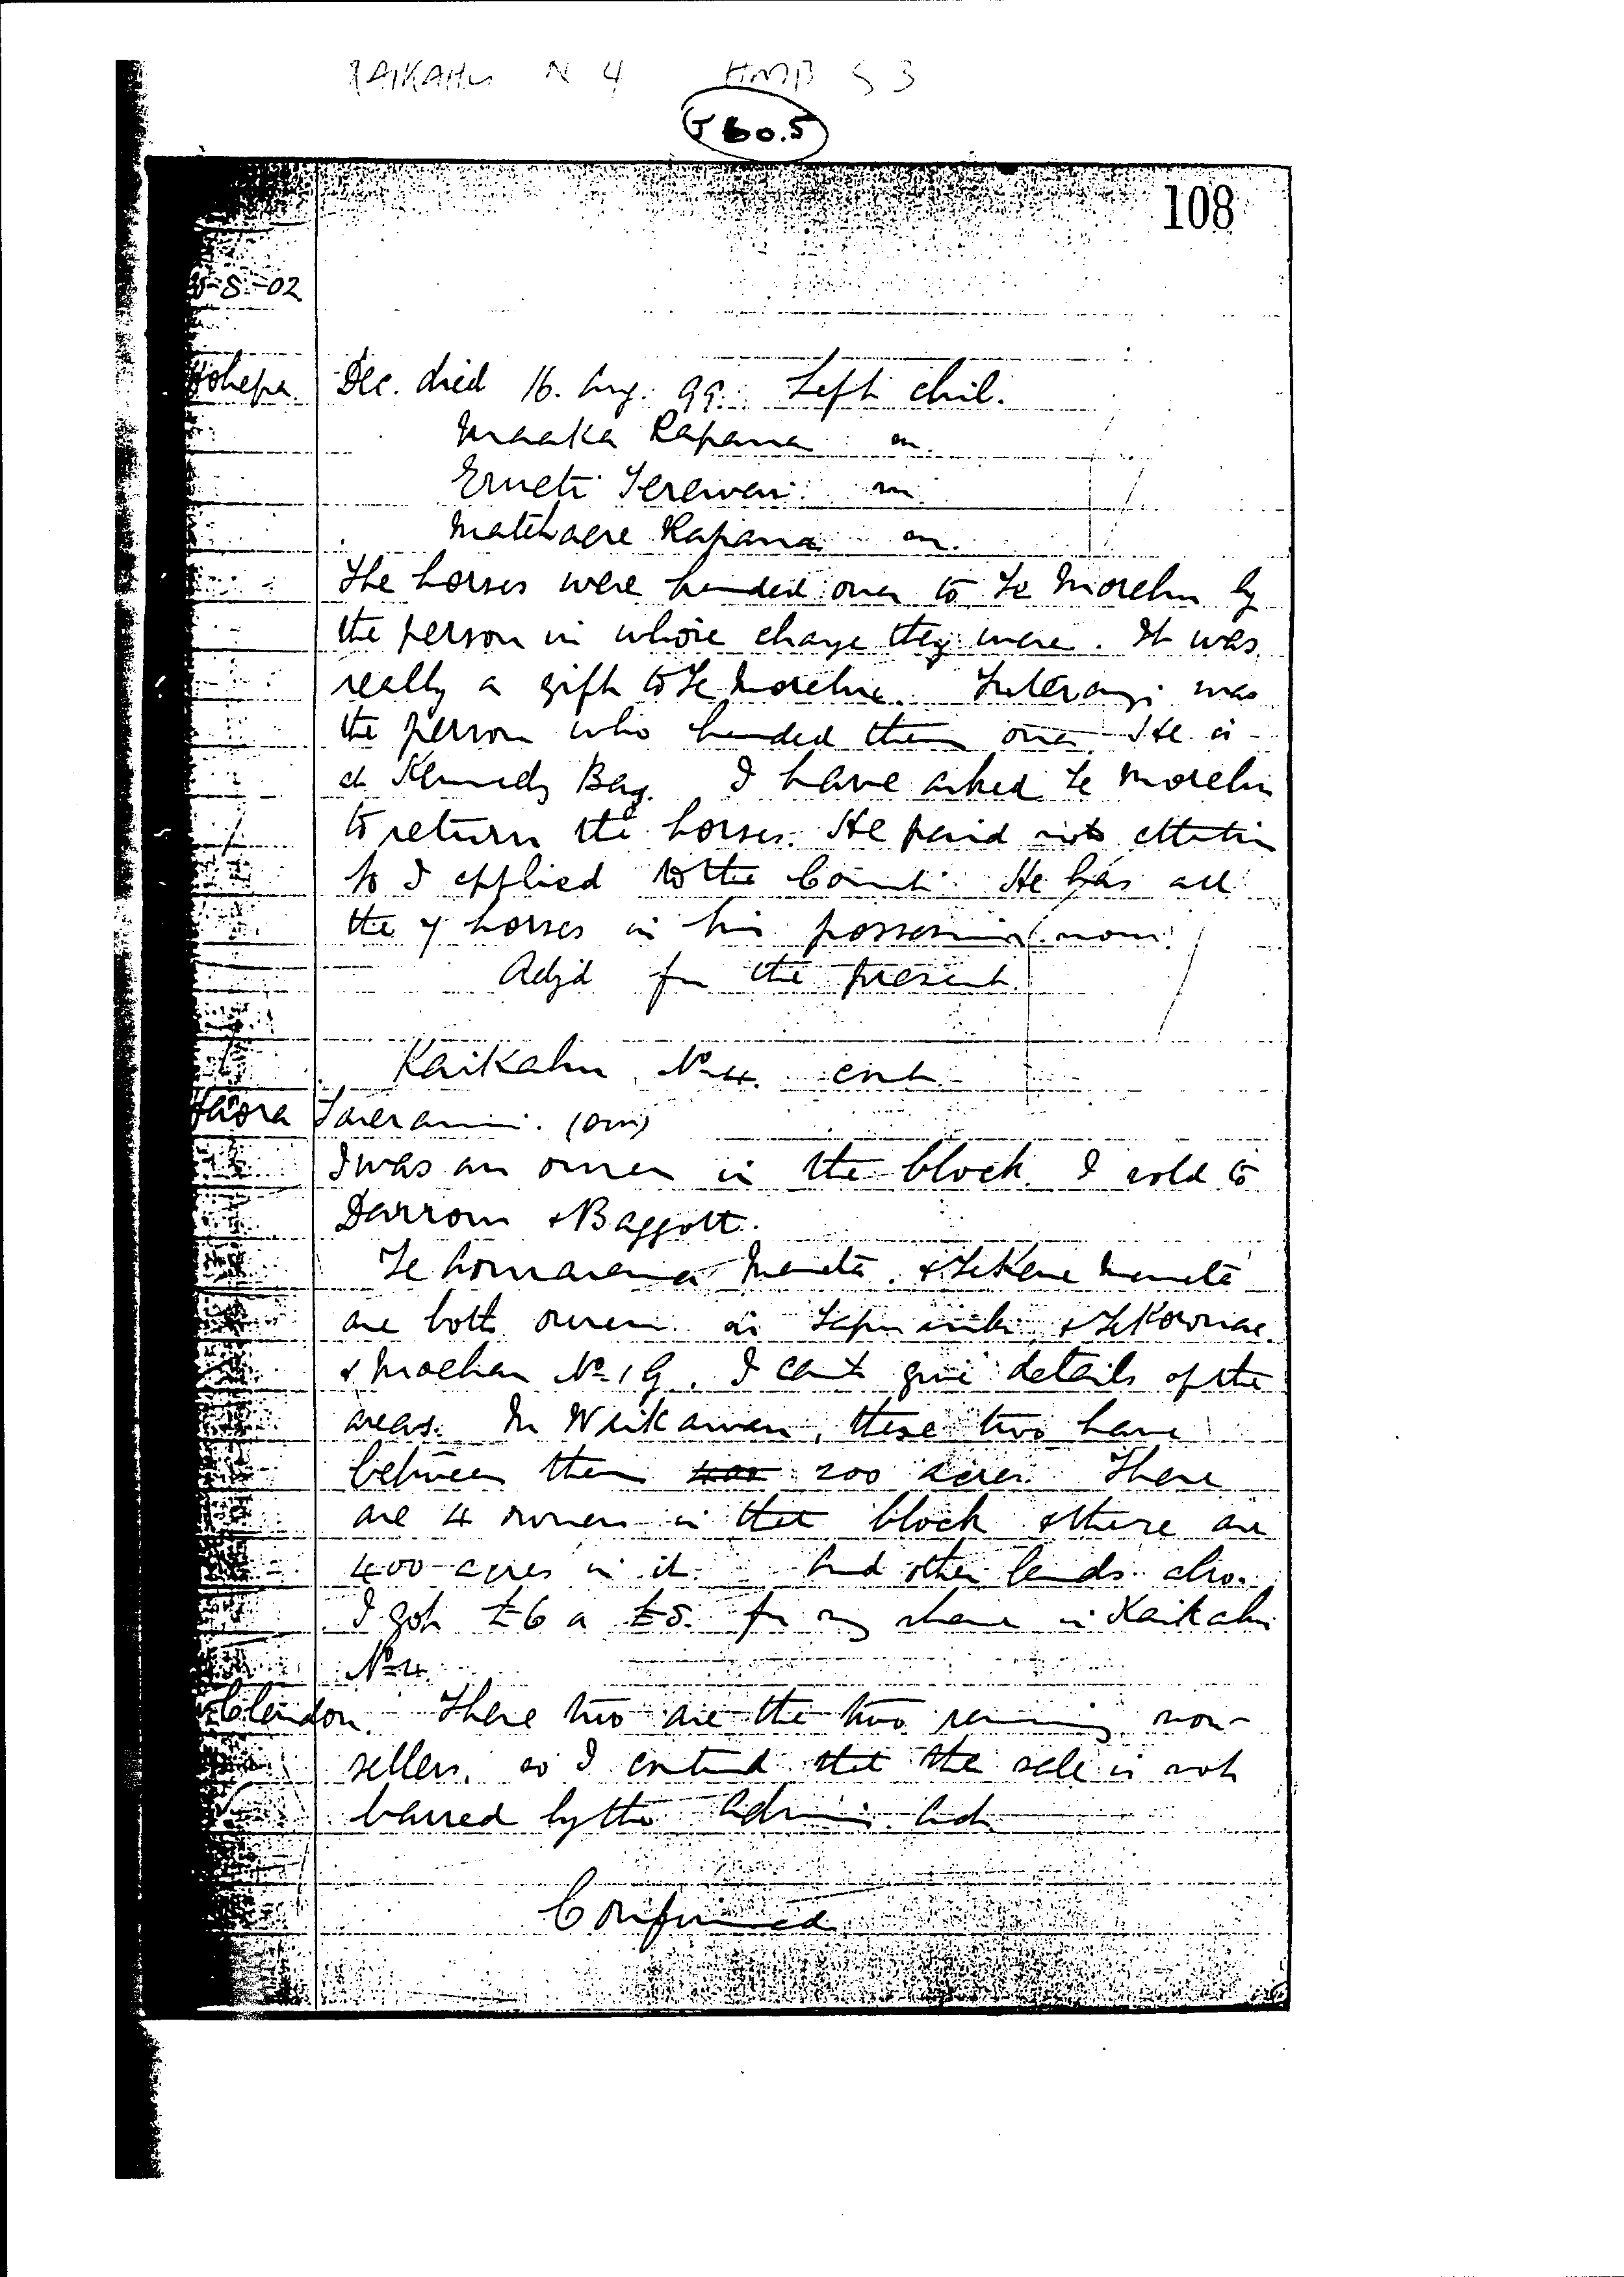 KAIKAHU N 4 HMB 53
J 60.5
108
-8-02
Hohepa. Dec. died 16. Aug. 99. Left chil.
Maaka Rapana m.
Erueti Terewai m.
Matehaere Rapana m.
The horses were handed over to Te Morehu by
the person in whose charge they were. It was
really a gift to Te Morehu. Tuterangi was
the person who handed them over. He is
at Kennedy Bay. I have asked Te Morehu
to return the horses. He paid not attention
so I applied to the Court. He has all
the 7 horses in his possession now.
Adjd for the present
Kaikahu No 4. cont
Haora Tareranui. (on)
I was an owner in the block. I sold to
Darrow & Baggott.
Te & Te
are both owners in &
& Moehau No 1G. I cant give details of the
areas. In Waikawau, these two have
between them 400 200 acres. There
are 4 owners in that block & there are
400 acres in it. And other lands also.
I got £6 a £5. for my share in Kaikahu
No 4.
Clendon. These two are the two remaining non-
sellers, so I contend that the sale is not
barred by the Admin. Act
Confirmed